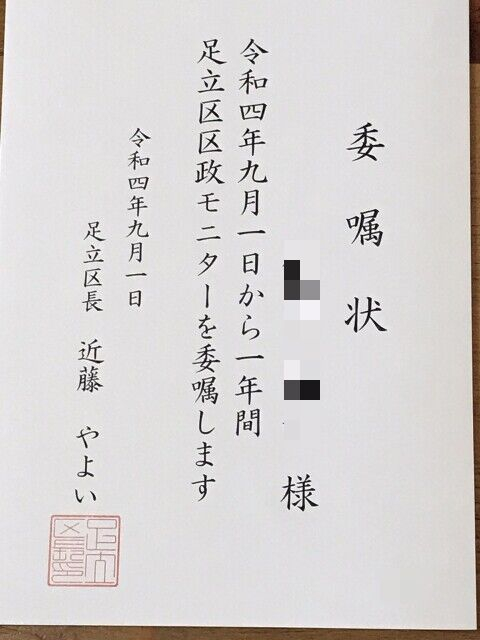 委嘱状
様
令和四年九月一日から一年間
足立区区政モニターを委嘱します
令和四年九月一日
足立区長 近藤 やよい